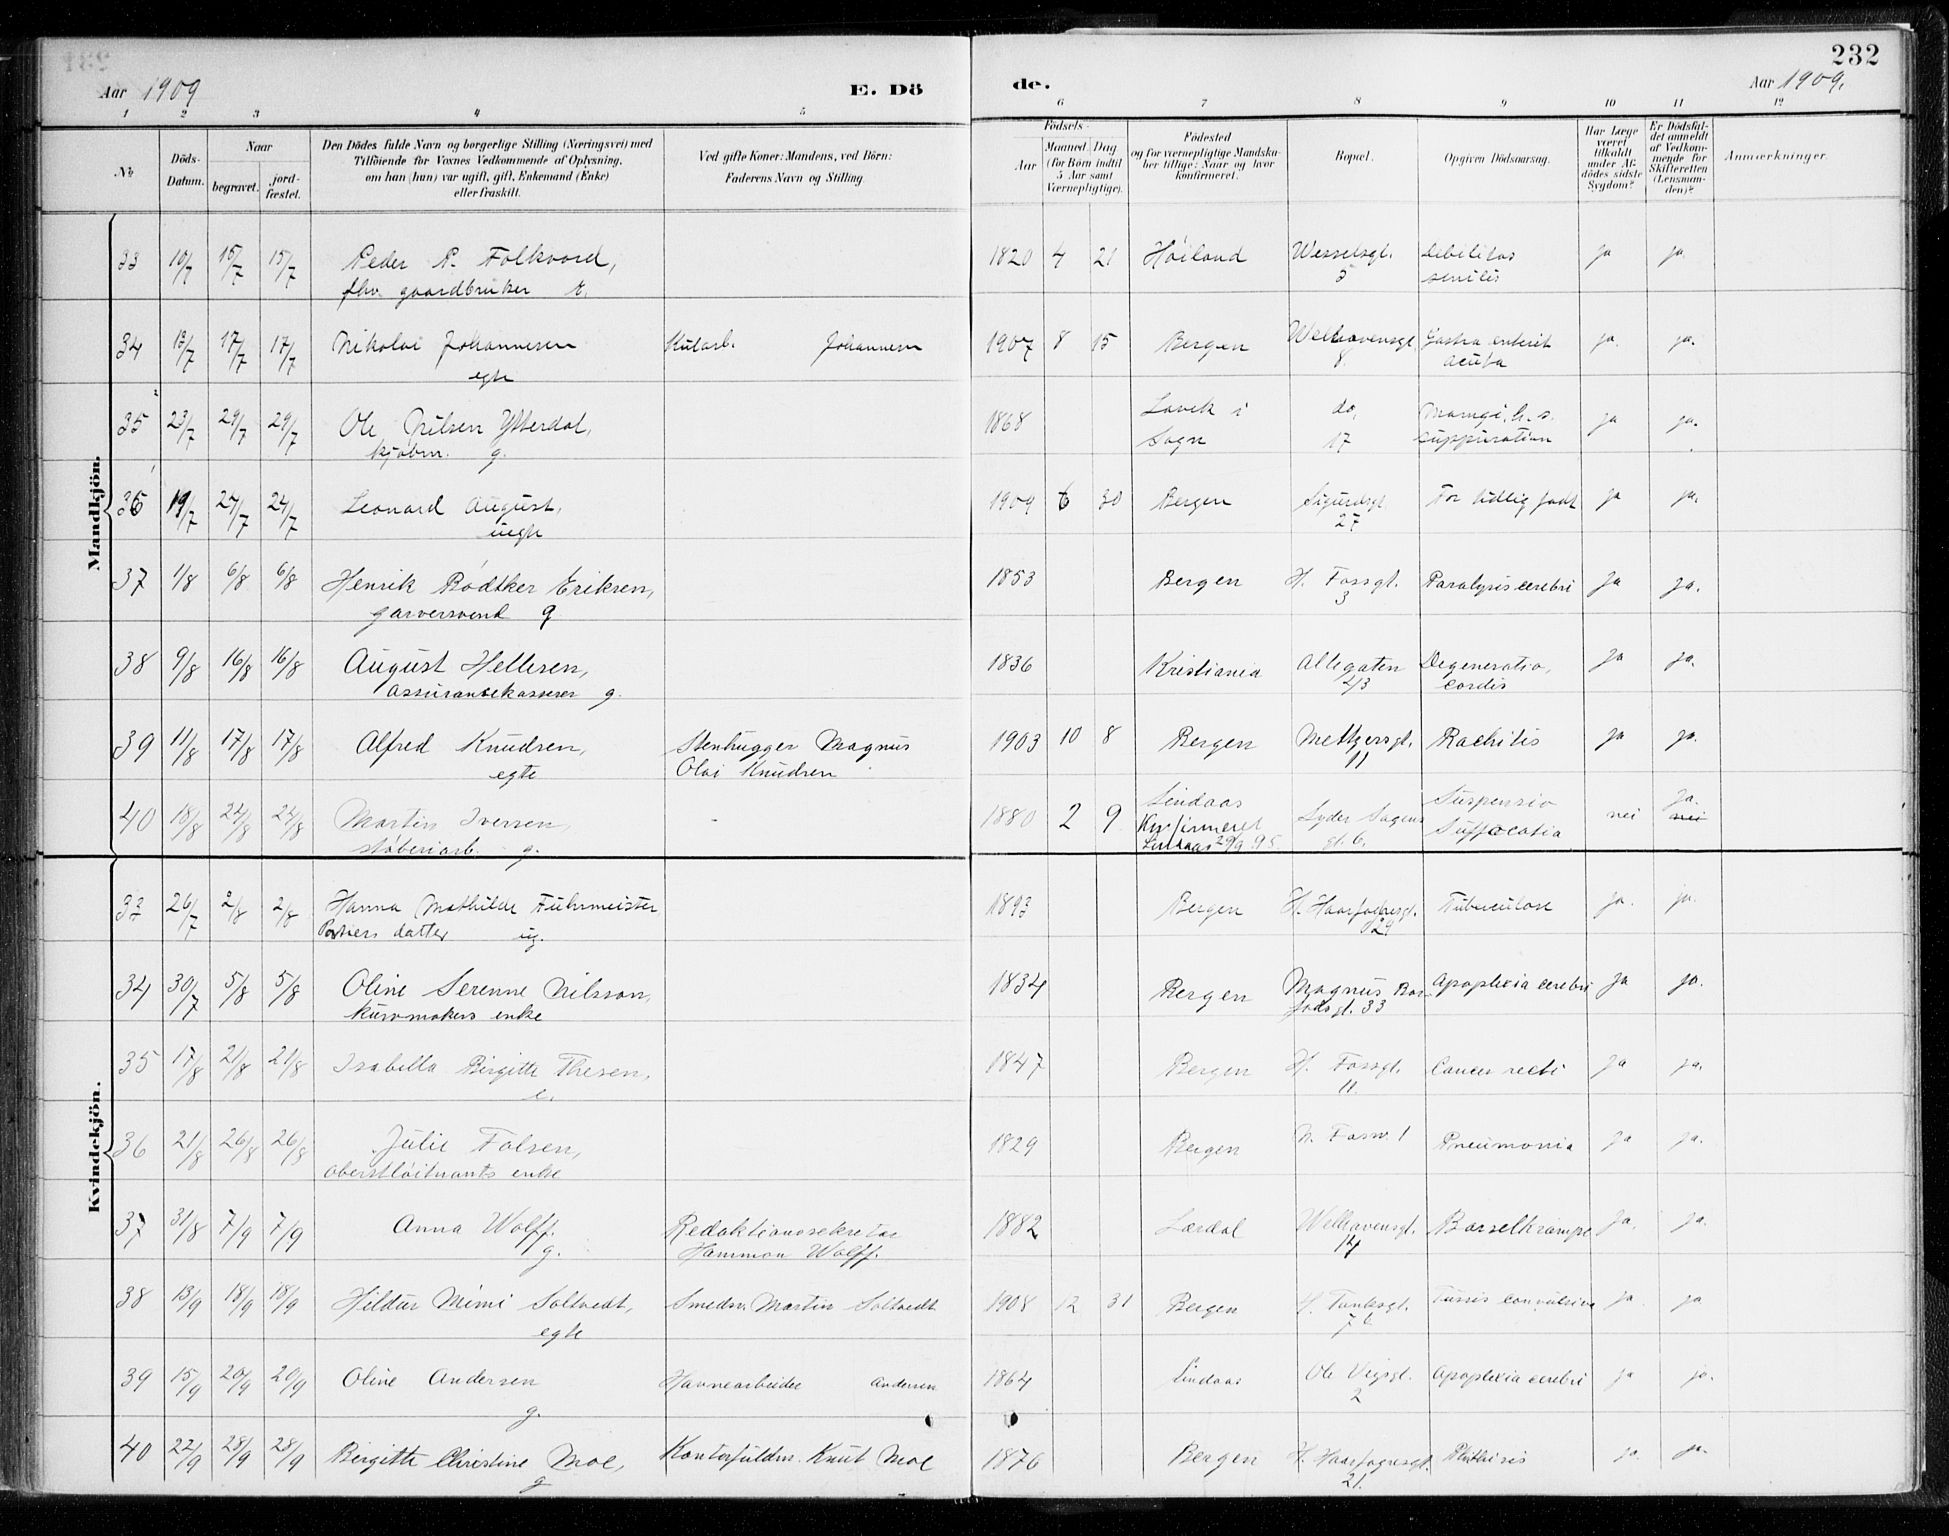 232
Aar 1909
E. Dö
de.
Aar 1909.
1 2 3 4 5 6 7 8 9 10 11 12
No
Döds-Datum.
Naar
begravet.
jord-fæstet.
Den Dödes fulde Navn og borgerlige Stilling (Næringsvei) med
Tilföiende för Voxnes Vedkommende af Oplysning,
om han (hun) var ugift, gift, Enkemand (Enke)
eller fraskilt.
Ved gifte Koner: Mandens, ved Börn:
Faderens Navn og Stilling.
Födsels-
Aar
Maaned. Dag
(for Börn indtil
5 Aar samt
Værnepligtige).
Födested
og for værnepligtige Mandska-
ber tillige: Naar og hvor
konfirmeret.
Bopæl.
Opgiven Dödsaarsag.
Har Læge
været
tilkaldt
under Af-
dödes sidste
Sygdom?
Er Dödsfal-
det anmeldt
af Vedkom-
mende for
Skifteretten
(Lensman-
den)?
Anmærkninger.
Mandkjön.
33 10/7 15/7 15/7 Peder P. Folkvord, 1820 4 21 Höiland Wesselsgt. Debilitas ja ja
fhv. gaardbruker E. 5 senilis
34 13/7 17/7 17/7 Nikolai Johannesen Kularb. Johannesen 1907 8 15 Bergen Welhavensgt. Gastro enterit ja. ja.
egte 8. acuta
35 23/7 29/7 29/7 Ole Nilsen Ytterdal, 1868 Lavik i do, ja ja.
kjøbm. g. Sogn 17 suppuration
36 19/7 24/7 24/7 Leonard August, 1909 6 30 Bergen Sigurdsgt. For tidlig født ja ja.
uegte 27
37 1/8 6/8 6/8 Henrik Bødtker Eriksen, 1853 Bergen H. Fossgt. Paralysis cerebri ja ja.
garversvend g 3
38 9/8 16/8 16/8 August Hellesen, 1836 Kristiania Allegaten Degeneratio ja ja.
Assurancekasserer g. 43 cordis
39 11/8 17/8 17/8 Alfred Knudsen, Stenhugger Magnus 1903 10 8 Bergen Meltzersgt. Rachitis ja ja.
egte Olai Knudsen 11
40 18/8 24/8 24/8 Martin Iversen, 1880 2 9 Lindaas Lyder Sagens Suspensio nei ja. nei
støberiarb. g. Konfirmeret gt. 6. Suffocatio
Lindaas 29/9 95
Kvindekjön.
33 26/7 2/8 2/8 Hanna Mathilde Fuhrmeister 1893 Bergen H. Haarfagresgt. Tuberculose ja. ja.
Portiers datter ug. 29
34 30/7 5/8 5/8 Oline Serenne Nilsson, 1834 Bergen Magnus Bar- Apoplexia cerebri ja ja.
kurvmakers enke fods gt. 33
35 17/8 21/8 21/8 Isabella Birgitte Thesen, 1847 Bergen H. Fossgt. Cancer recti ja ja.
e. 11.
36 21/8 26/8 26/8 Julie Falsen, 1829 Bergen 1 Pneumonia ja ja.
oberstløitnants enke
37 31/8 7/9 7/9 Anna Wolff. Redaktionssekretær 1882 Lærdal Welhavensgt. Barselkrampe ja. ja.
g. Hammon Wolff. 14
38 13/9 18/9 18/9 Hildur Mimi Soltvedt, Smedsv. Martin Soltvedt 1908 12 31 Bergen H. Tanksgt. Tussis convulsiva ja ja
egte
39 15/9 20/9 20/9 Oline Andersen Havnearbeider Andersen 1864 Lindaas Ole Vigsgt. Apoplexia cerebri ja ja.
g. 2
40 22/9 28/9 28/9 Birgitte Christine Moe, Kontorfuldm. Knut Moe 1876 Bergen H. Haarfagresgt. Phthisis ja. ja.
g 21.